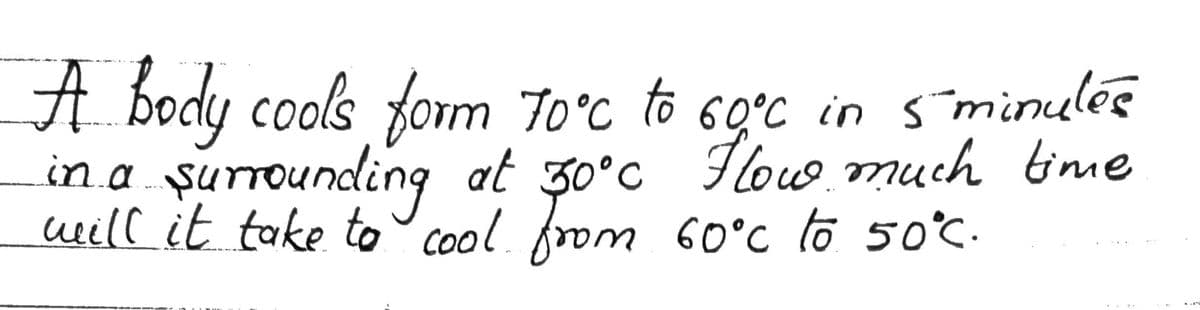 A body cools form 70°C to 60°C in 5 minutes
in a surrounding at 30°C How much time
will it take to cool from 60°C to 50°C.